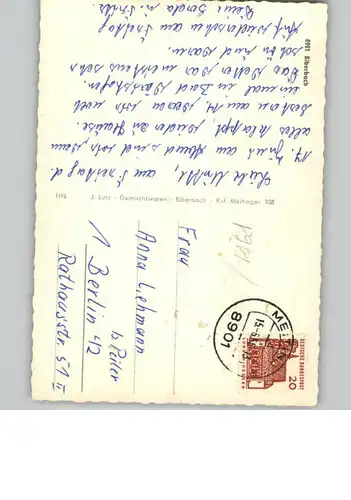 8901 Biberbach
Liebe Mutti, am Freitag d.
17. Juni am Abend sind wir, wenn
alles klappt, wieder zu Hause.
Gestern am M. waren wir noch
einmal in Bad Wörishofen.
Das Wetter war zuletzt sehr
schön und warm.
Auf Wiedersehen am Freitag
Deine Gerda u. Fritz
H96 J. Lutz - Gemischtwaren - Biberbach - Kuf. Meitingen 238
Frau
Anna Lehmann
b. Peiler
1 Berlin 42
Rathausstr. 51 II
8901
DEUTSCHE BUNDESPOST
20